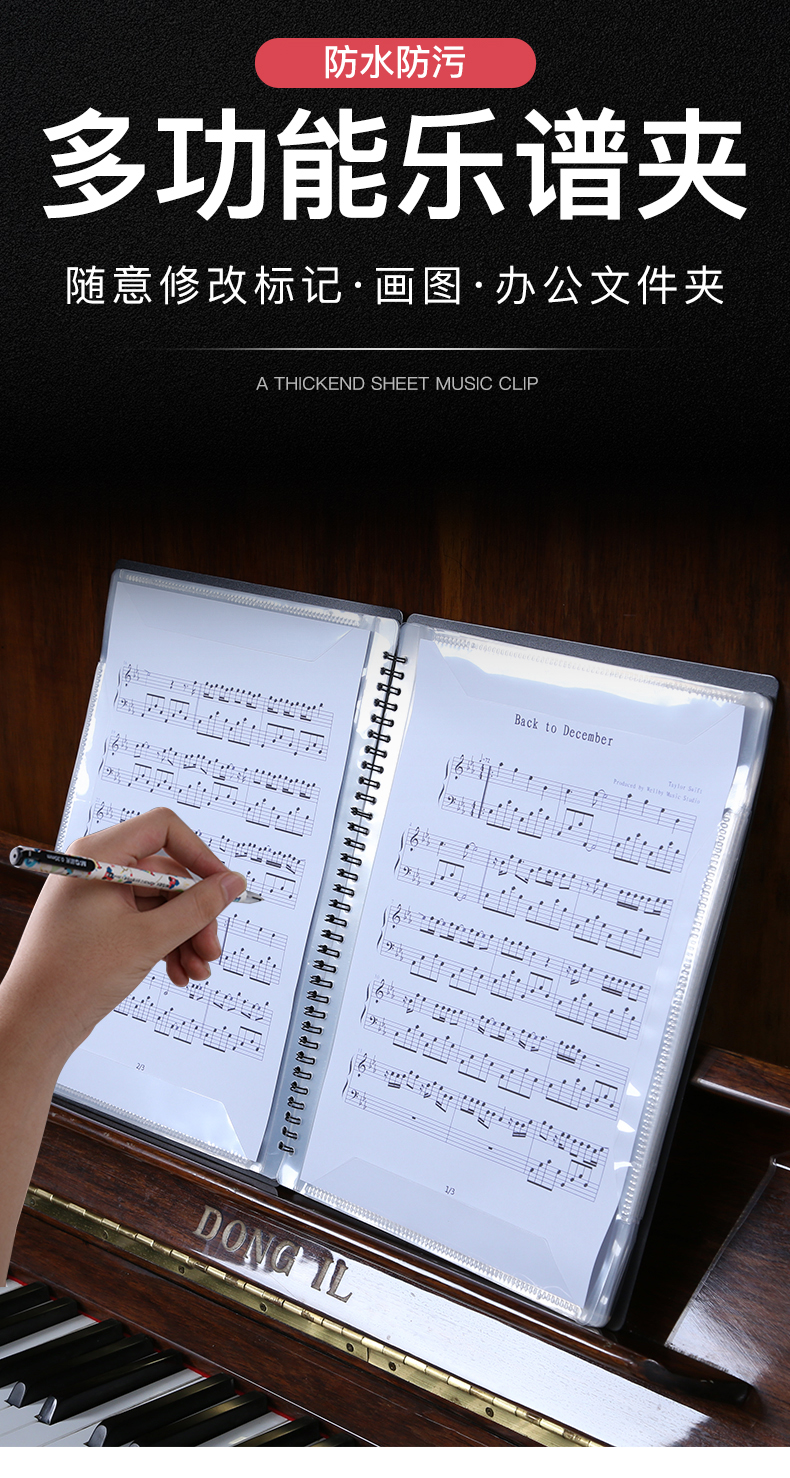 防水防污
多功能乐谱夹
随意修改标记·画图·办公文件夹
A THICKEND SHEET MUSIC CLIP
Back to December
Taylor Swift
Produced by Kellby Music Studio
2/3
1/3
DONG IL